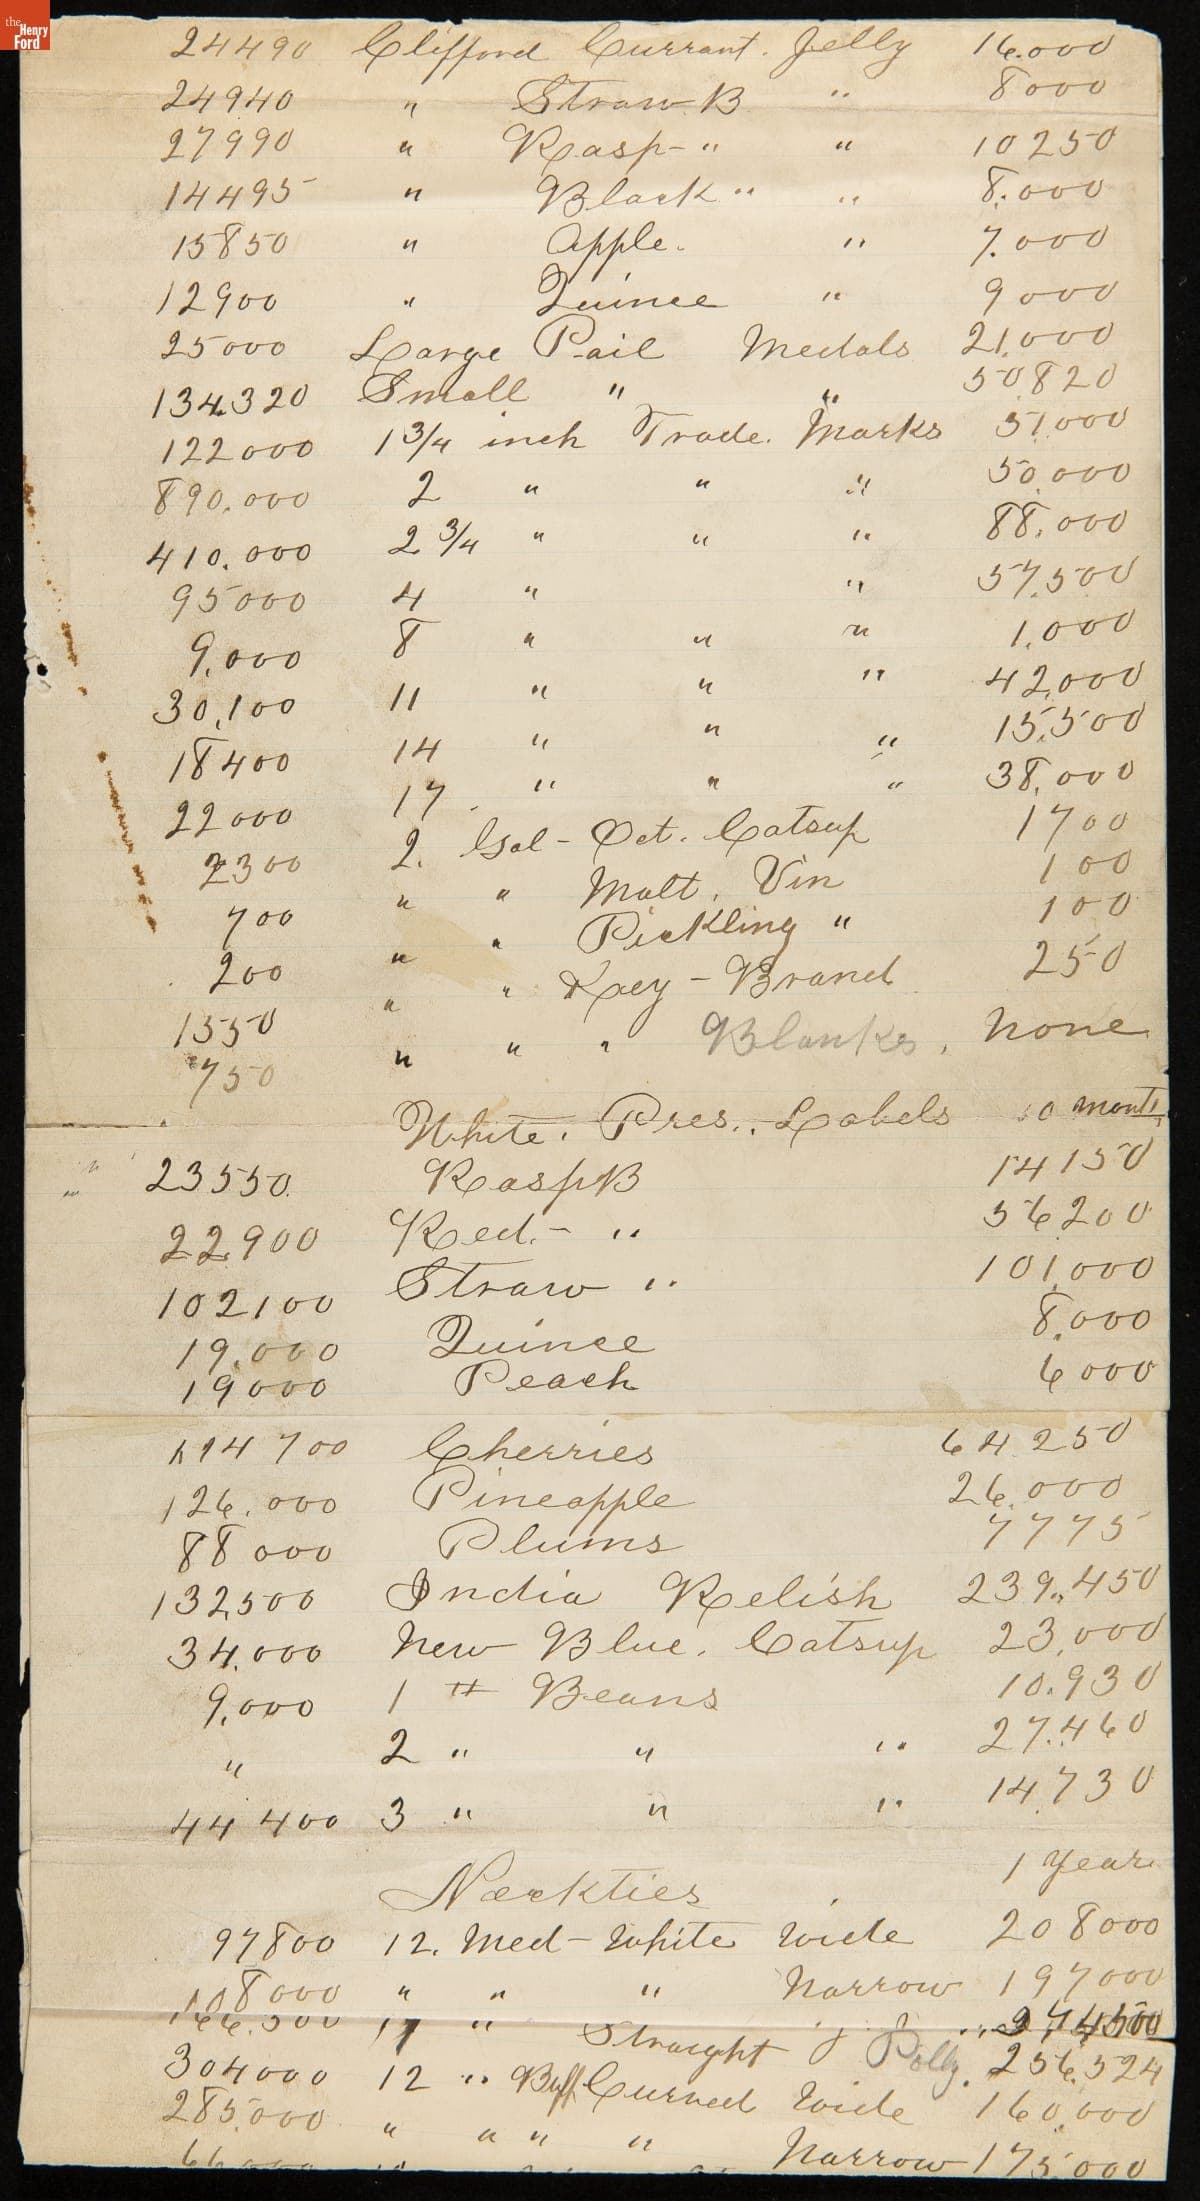 the Henry Ford
24490 Clifford Currant. Jelly 16.000
24940 " Straw B " 8000
27990 " Rasp- " " 10250
14495 " Black " " 8.000
15850 " Apple. " 7.000
12900 " Quince " 9000
25000 Large Pail Medals 21.000
134.320 Small " " 50820
122000 1 3/4 inch Trade. Marks 51.000
890.000 2 " " " 50.000
410.000 2 3/4 " " " 88.000
95000 4 " " 57.500
9,000 8 " " " 1.000
30,100 11 " " " 42,000
18400 14 " " " 15.500
22000 17 " " " 38,000
2300 2. Gal - Oct. Catsup 1700
700 " " Malt. Vin 100
200 " " Pickling " 100
1550 " " Key - Brand 250
750 " " " Blanks, None
White. Pres.. Labels
23550 RaspB 14150
22900 Red.- " 56200
102100 Straw " 101,000
19.000 Quince 8.000
19000 Peach 6000
Cherries 64250
126.000 Pineapple 26.000
88000 Plums 7775
132,500 India Relish 239.450
34.000 New Blue. Catsup 23,000
9,000 1 # Beans 10.930
" 2 " " " 27.460
44400 3 " " " 14,730
Neckties 1 Year
97800 12. Med - White Wide 208000
108000 " " " Narrow 197000
166.500 17 " Straight
304000 12 " Buff Curved Wide 160,000
285.000 " " " " Narrow 175.000
Polly. 256.524